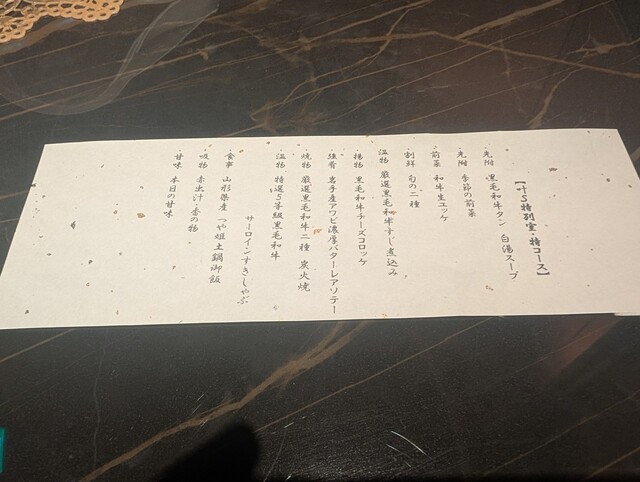 【叶S特別室・特コース】
・先附 黒毛和牛タン 白湯スープ
・先附 季節の前菜
・前菜 和牛生ユッケ
・割鮮 旬の二種
温物 厳選黒毛和牛すじ煮込み
・揚物 黒毛和牛チーズコロッケ
・強肴 岩手産アワビ濃厚バターレアソテー
・焼物 厳選黒毛和牛二種 炭火焼
・温物 特選5等級黒毛和牛
サーロインすきしゃぶ
・食事 山形県産 つや姫土鍋御飯
・吸物 赤出汁・香の物
・甘味 本日の甘味